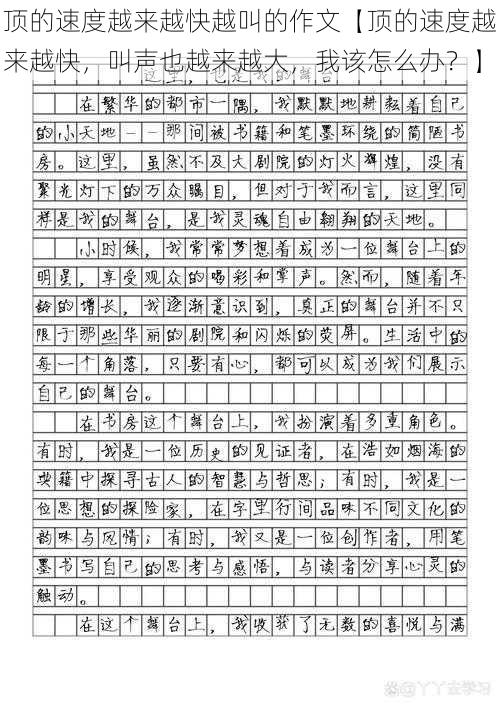 顶的速度越来越快越叫的作文【顶的速度越
来越快，叫声也越来越大，我该怎么办？】
这里，也是我的舞台
在繁华的都市一隅，我默默地耕耘着自己
的小天地——那间被书籍和笔墨环绕的简陋书
房。这里，虽然不及大剧院的灯火辉煌，没有
聚光灯下的万众瞩目，但对于我而言，这里同
样是我的舞台，是我灵魂自由翱翔的天地。
小时候，我常常梦想着成为一位舞台上的
明星，享受观众的喝彩和掌声。然而，随着年
龄的增长，我逐渐意识到，真正的舞台并不只
限于那些华丽的剧院和闪烁的荧屏。生活中的
每一个角落，只要有心，都可以成为我们展示
自己的舞台。
在书房这个舞台上，我扮演着多重角色。
有时，我是一位历史的见证者，在浩如烟海的
典籍中探寻古人的智慧与哲思；有时，我是一
位思想的探险家，在字里行间品味不同文化的
韵味与风情；有时，我又是一位创作者，用笔
墨书写自己的思考与感悟，与读者分享心灵的
触动。
在这个舞台上，我收获了无数的喜悦与满
@丫丫去学习